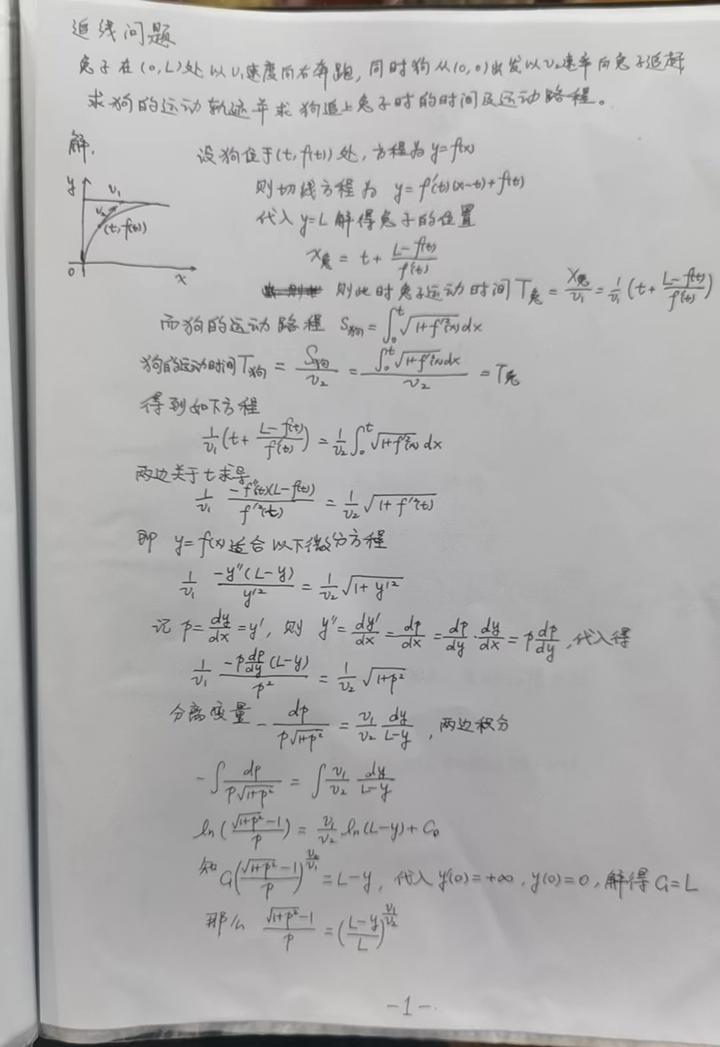 追线问题
兔子在(0,L)处以v₁速度向右奔跑,同时狗从(0,0)出发以v₂速率向兔子追赶,
求狗的运动轨迹并求狗追上兔子时的时间及运动路程。
解.
设狗位于(t,f(t))处,方程为y=f(x)
y
v₁
v₂
(t,f(t))
0
x
则切线方程为 y=f'(t)(x-t)+f(t)
代入y=L解得兔子的位置
x兔 = t + (L-f(t))/f'(t)
则此时兔子运动时间T兔 = X兔/v₁ = 1/v₁ (t + (L-f(t))/f'(t))
而狗的运动路程 S狗 = ∫₀ᵗ √(1+f'²(x)) dx
狗的运动时间T狗 = S狗/v₂ = ∫₀ᵗ √(1+f'²(x)) dx / v₂ = T兔
得到如下方程
1/v₁ (t + (L-f(t))/f'(t)) = 1/v₂ ∫₀ᵗ √(1+f'²(x)) dx
两边关于t求导
1/v₁ · -f''(t)(L-f(t))/f'²(t) = 1/v₂ √(1+f'²(t))
即 y=f(x)适合以下微分方程
1/v₁ · -y''(L-y)/y'² = 1/v₂ √(1+y'²)
记 p = dy/dx = y', 则 y'' = dy'/dx = dp/dx = dp/dy · dy/dx = p dp/dy, 代入得
1/v₁ · -p dp/dy (L-y)/p² = 1/v₂ √(1+p²)
分离变量 - dp/(p√(1+p²)) = v₁/v₂ dy/(L-y), 两边积分
-∫ dp/(p√(1+p²)) = ∫ v₁/v₂ dy/(L-y)
ln((√(1+p²)-1)/p) = v₁/v₂ ln(L-y) + C₀
C₁((√(1+p²)-1)/p)^(v₂/v₁) = L-y, 代入y'(0)=+∞, y(0)=0, 解得C₁=L
那么 (√(1+p²)-1)/p = ((L-y)/L)^(v₁/v₂)
-1-